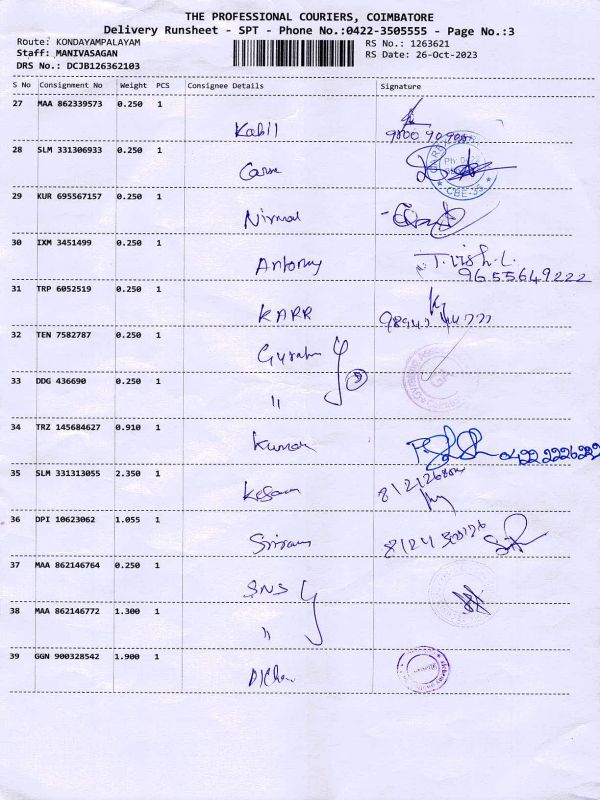 THE PROFESSIONAL COURIERS, COIMBATORE
Delivery Runsheet - SPT - Phone No.:0422-3505555 - Page No.:3
Route: KONDAYAMPALAYAM
RS No.: 1263621
Staff: MANIVASAGAN
RS Date: 26-Oct-2023
DRS No.: DCJB126362103
S No Consignment No Weight PCS Consignee Details Signature
27 MAA 862339573 0.250 1
Kabil
28 SLM 331306933 0.250 1
CBE-35
29 KUR 695567157 0.250 1
Nirmal
30 IXM 3451499 0.250 1
Antony 9655649222
31 TRP 6052519 0.250 1
KARR
32 TEN 7582787 0.250 1
33 DDG 436690 0.250 1
"
34 TRZ 145684627 0.910 1
Kumar
35 SLM 331313055 2.350 1
Kesavan
36 DPI 10623062 1.055 1
Sriram
37 MAA 862146764 0.250 1
SNS
38 MAA 862146772 1.300 1
"
39 GGN 900328542 1.900 1